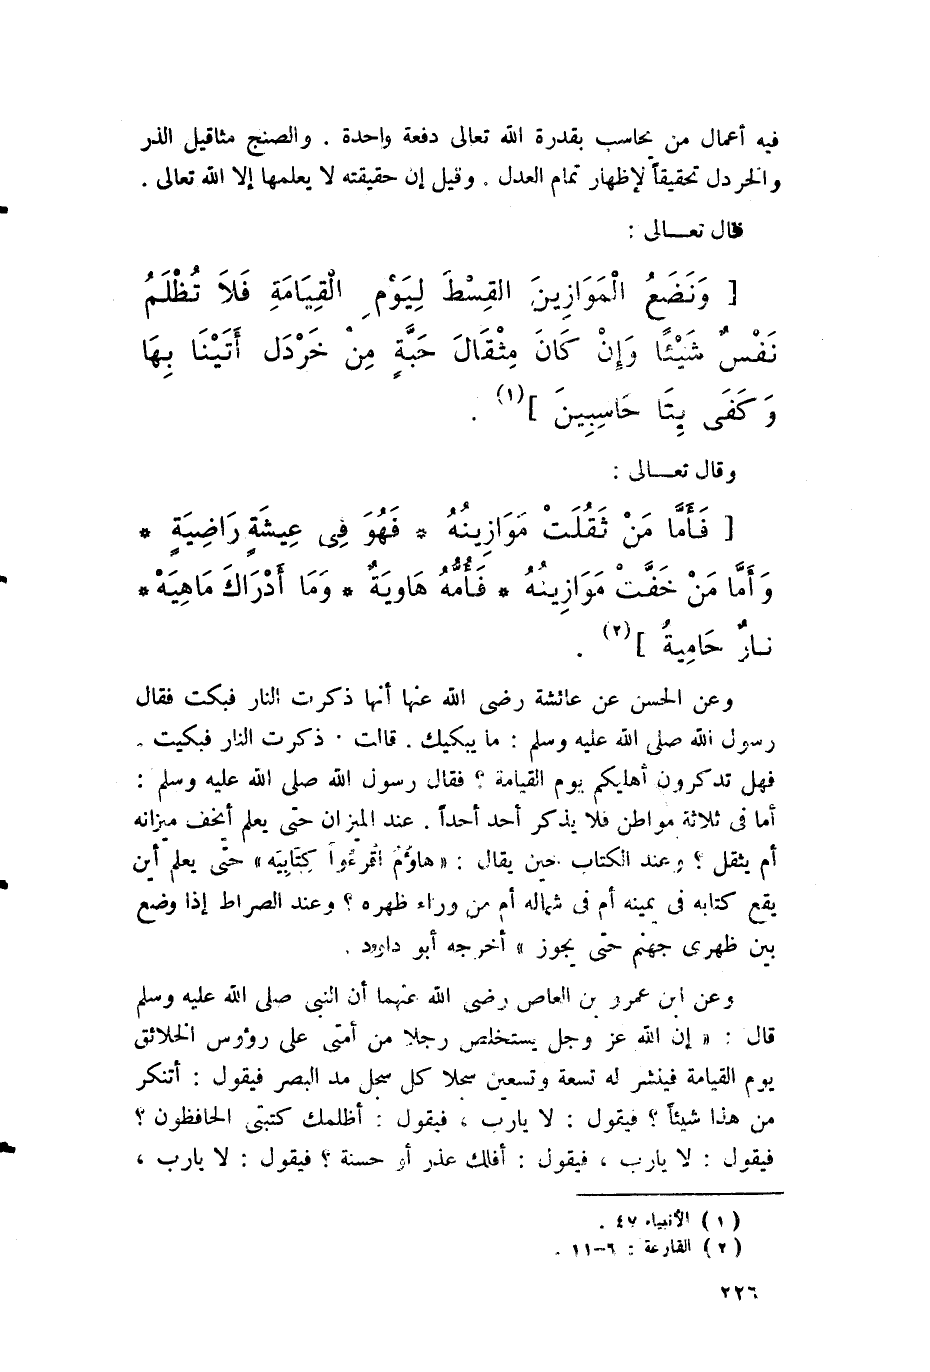 فيه أعمال من يحاسب بقدرة الله تعالى دفعة واحدة . والصنج مثاقيل الذر
والخردل تحقيقاً لإظهار تمام العدل . وقيل إن حقيقته لا يعلمها إلا الله تعالى .
قال تعـــالى :
[ وَنَضَعُ الْمَوَازِينَ القِسْطَ لِيَوْمِ الْقِيَامَةِ فَلَا تُظْلَمُ
نَفْسٌ شَيْئًا وَإِنْ كَانَ مِثْقَالَ حَبَّةٍ مِنْ خَرْدَل أَتَيْنَا بِهَا
وَكَفَى بِنَا حَاسِبِينَ ](١) .
وقال تعـــالى :
[ فَأَمَّا مَنْ ثَقُلَتْ مَوَازِينُهُ * فَهُوَ فِى عِيشَةٍ رَاضِيَةٍ *
وَأَمَّا مَنْ خَفَّتْ مَوَازِينُهُ * فَأُمُّهُ هَاوِيَةٌ * وَمَا أَدْرَاكَ مَاهِيَهْ *
نـارٌ حَامِيةُ ](٢) .
وعن الحسن عن عائشة رضى الله عنها أنها ذكرت النار فبكت فقال
رسول الله صلى الله عليه وسلم : ما يبكيك . قالت . ذكرت النار فبكيت .
فهل تذكرون أهليكم يوم القيامة ؟ فقال رسول الله صلى الله عليه وسلم :
أما فى ثلاثة مواطن فلا يذكر أحد أحداً . عند الميزان حتى يعلم أيخف ميزانه
أم يثقل ؟ وعند الكتاب حين يقال : « هاؤُمُ اقْرءُواْ كِتَابِيَه » حتى يعلم أين
يقع كتابه فى يمينه أم فى شماله أم من وراء ظهره ؟ وعند الصراط إذا وضع
بين ظهرى جهنم حتى يجوز » أخرجه أبو داود .
وعن ابن عمرو بن العاص رضى الله عنهما أن النبى صلى الله عليه وسلم
قال : « إن الله عز وجل يستخلص رجلا من أمتى على رؤوس الخلائق
يوم القيامة فينشر له تسعة وتسعين سجلا كل سجل مد البصر فيقول : أتنكر
من هذا شيئاً ؟ فيقول : لا يارب ، فيقول : أظلمك كتبتى الحافظون ؟
فيقول : لا يارب ، فيقول : أفلك عذر أو حسنة ؟ فيقول : لا يارب ،
(١) الأنبياء ٤٧ .
(٢) القارعة : ٦-١١ .
٢٢٦